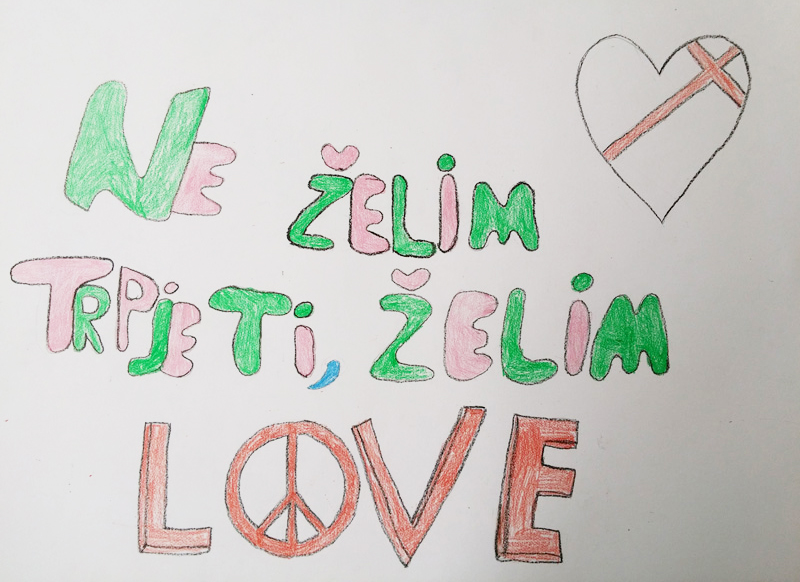 NE ŽELIM
TRPJETI, ŽELIM
LOVE